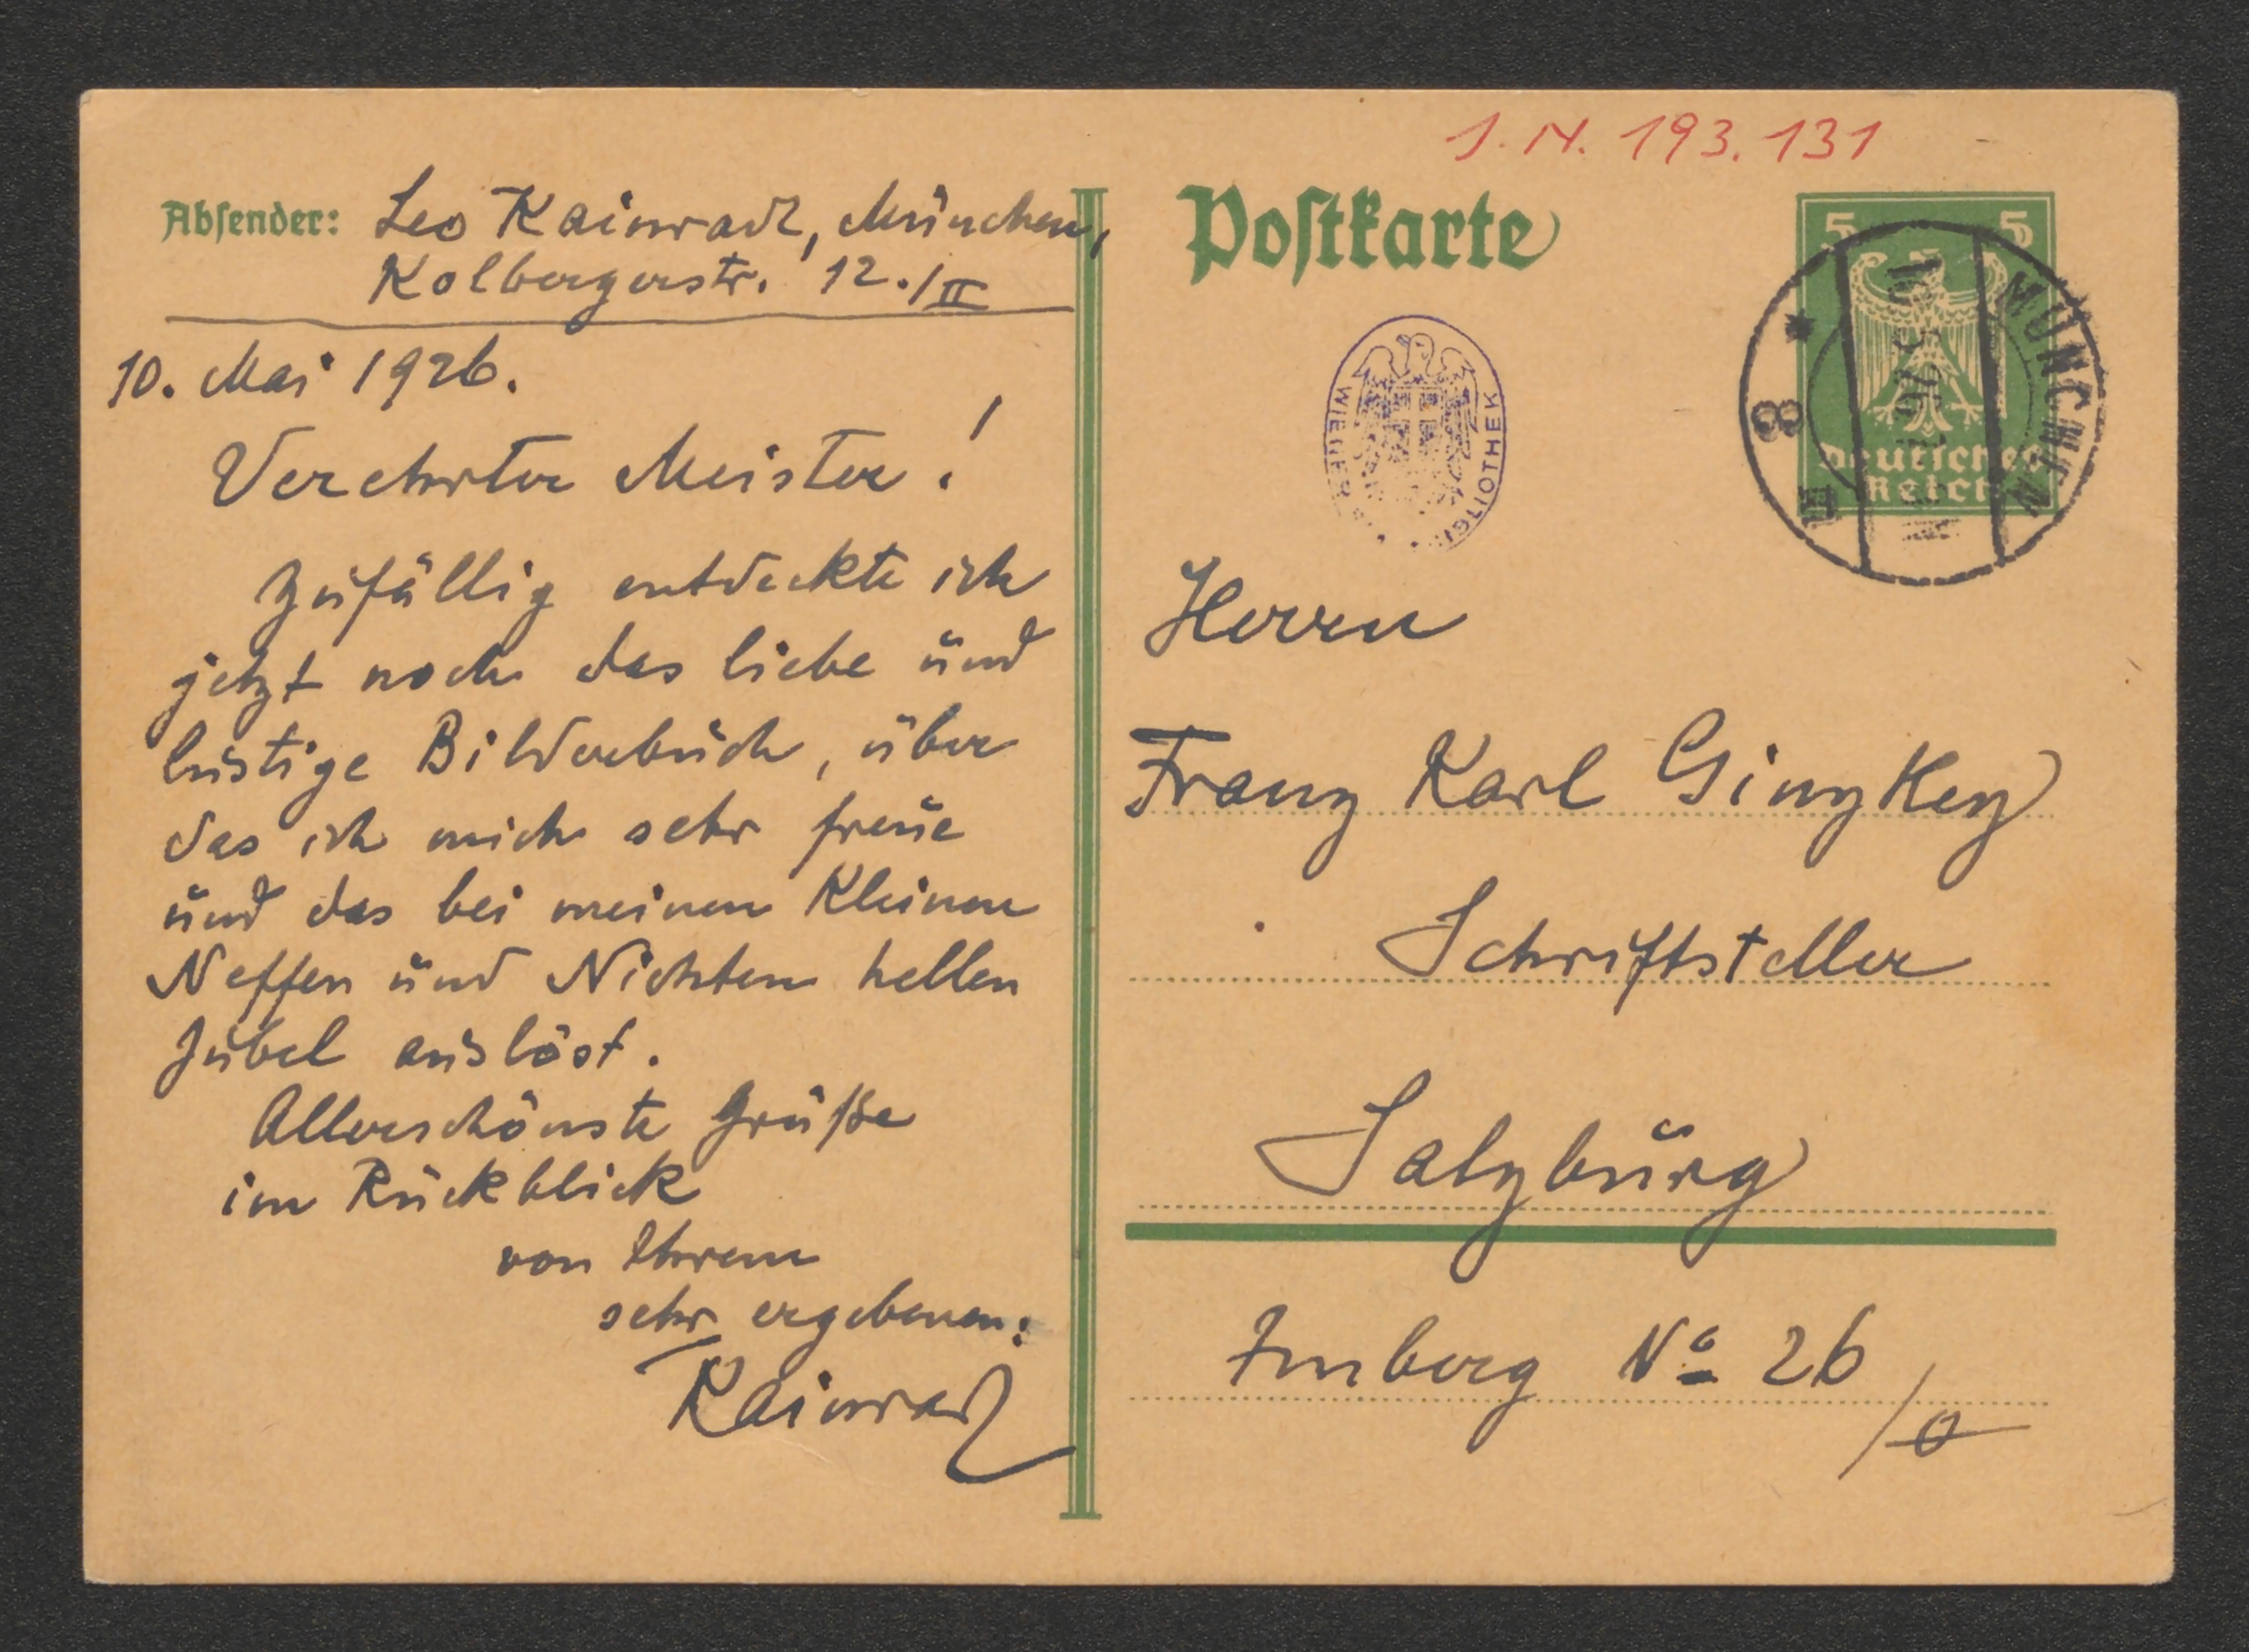 J. N. 193.131
Absender: Leo Kainradl, München,
Kolbergerstr. 12./II
10. Mai 1926.
Verehrter Meister!
Zufällig entdeckte ich
jetzt noch das liebe und
lustige Bilderbuch, über
das ich mich sehr freue
und das bei meinen kleinen
Neffen und Nichten hellen
Jubel auslöst.
Allerschönste Grüße
im Rückblick
von Ihrem
sehr ergebenen:
Kainradl
Postkarte
5 5
Deutsches
Reich
MÜNCHEN
* 8
WIENER
BIBLIOTHEK
Herrn
Franz Karl Ginzkey
Schriftsteller
Salzburg
Imberg No 26